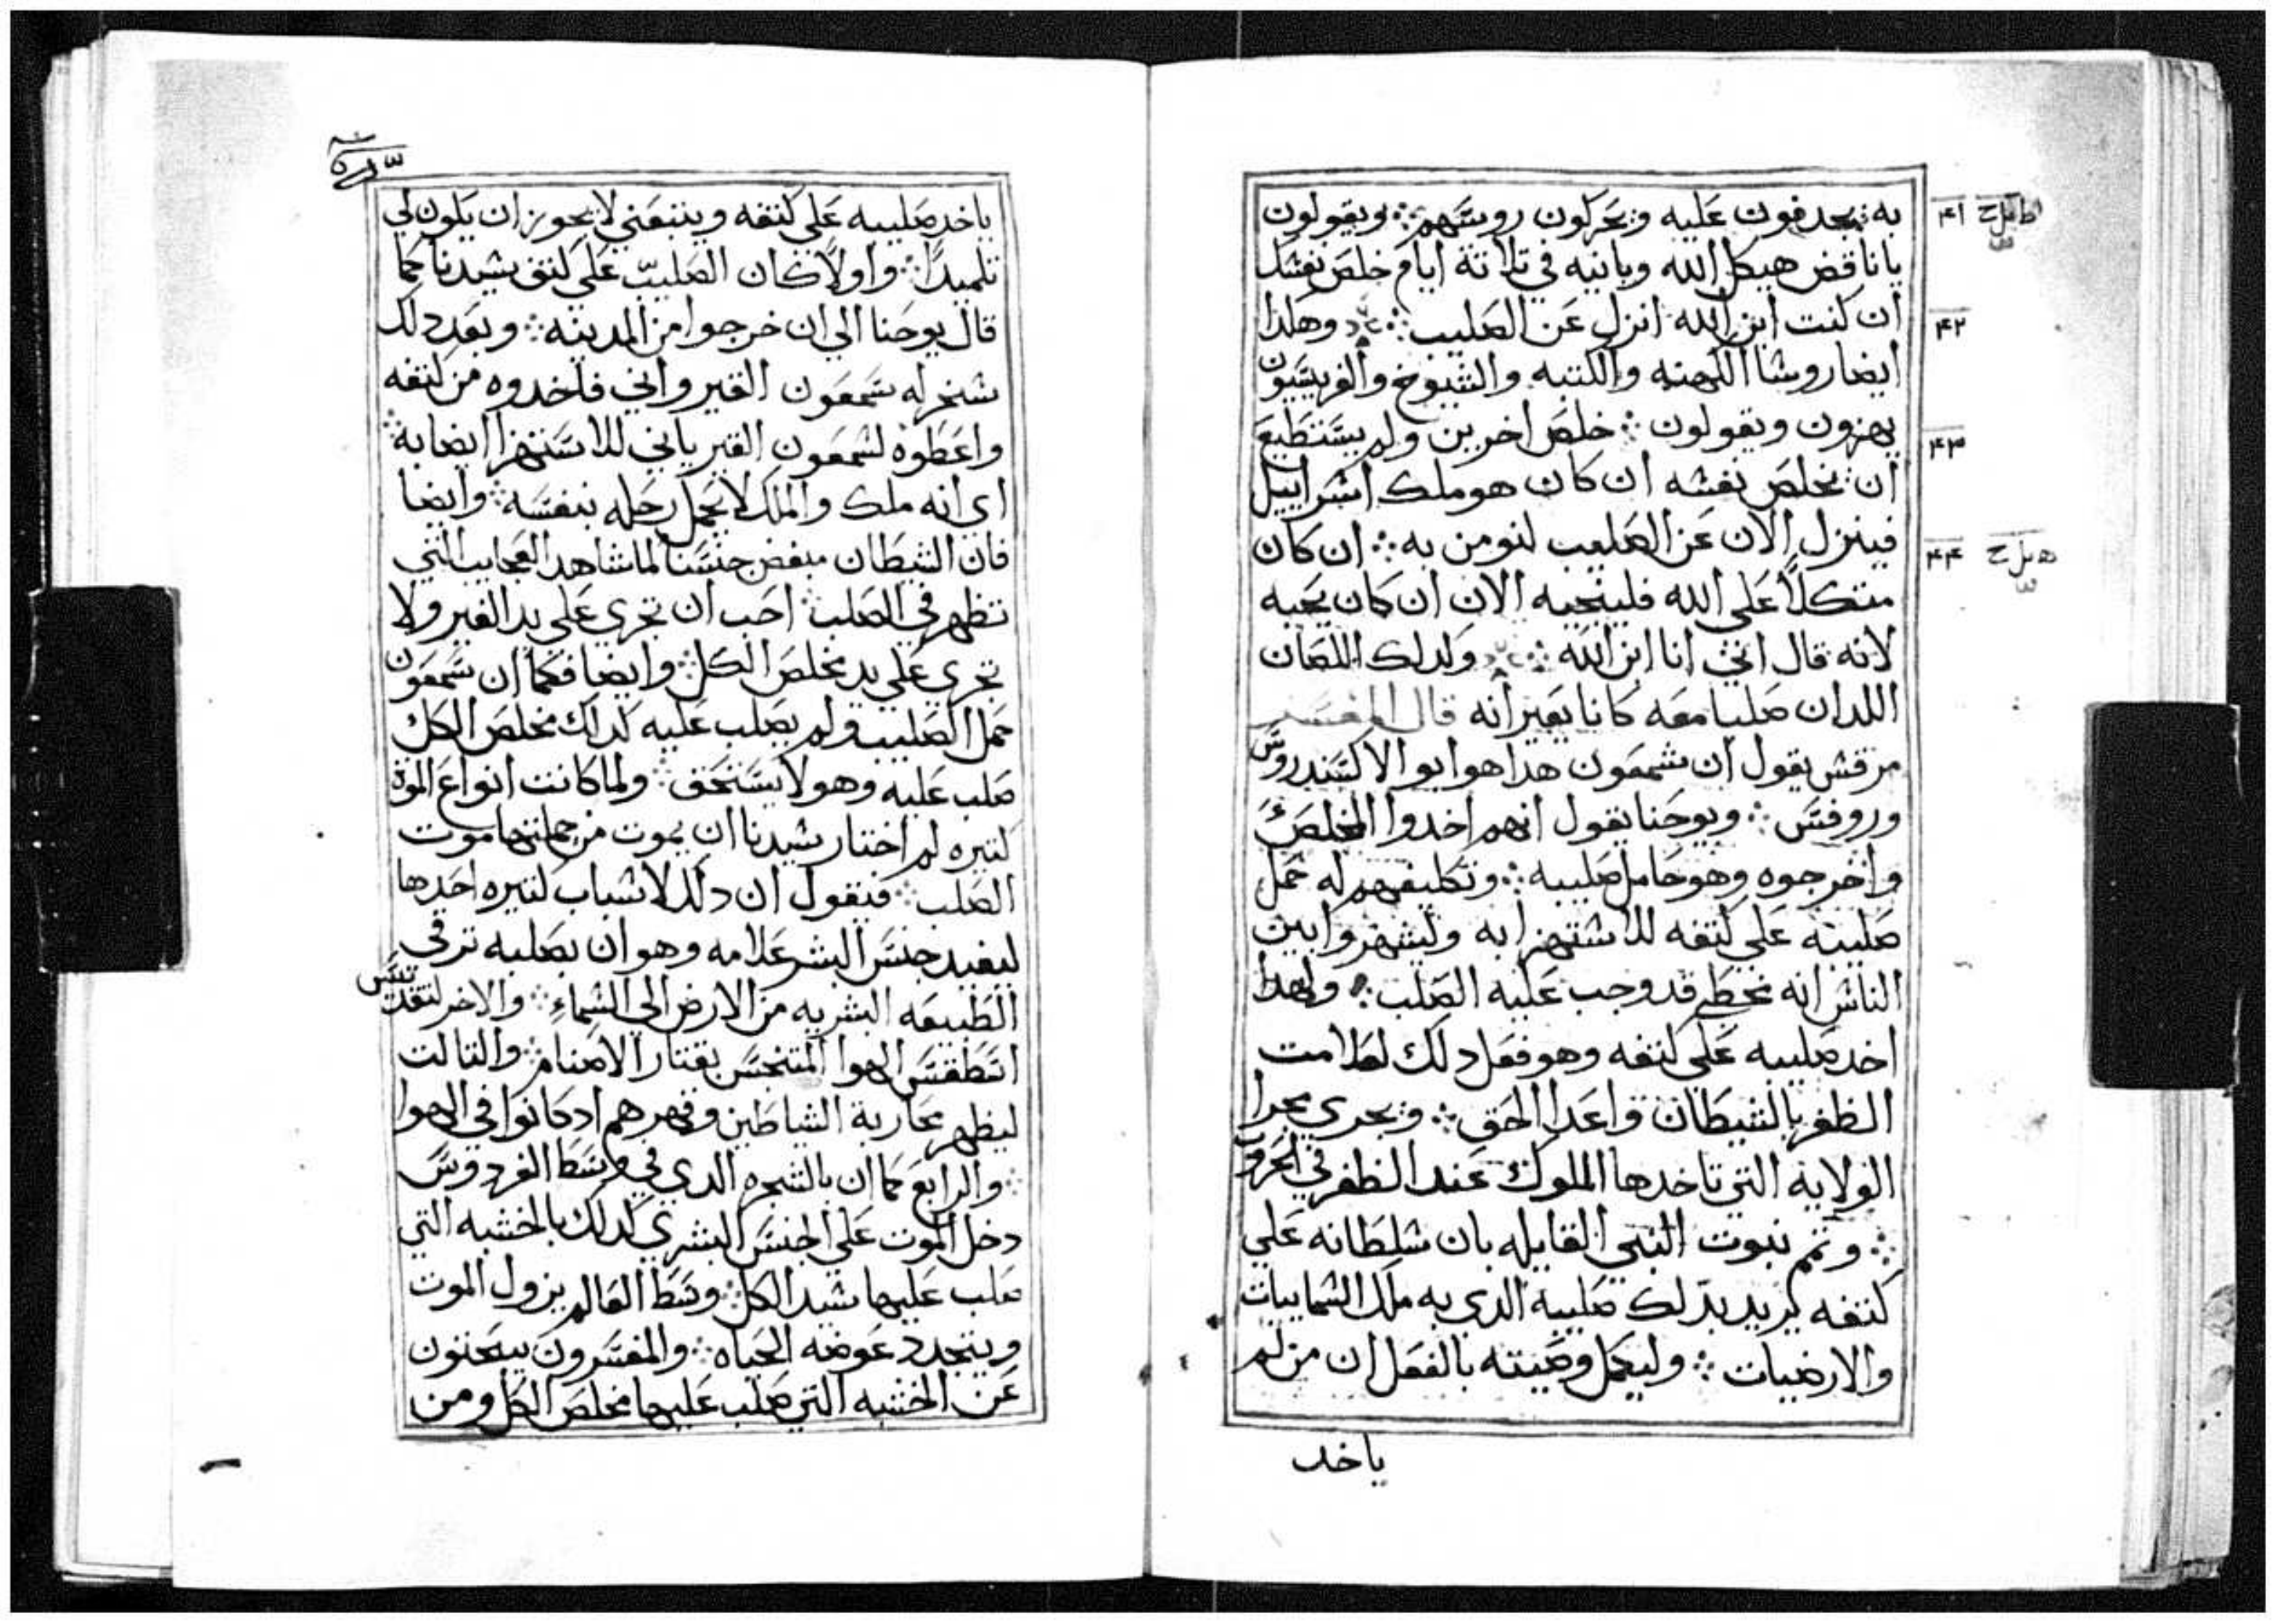 به يجدفون عليه ويحركون روسهم ⁘ ويقولون
ياناقض هيكل الله وبانيه في تلاتة ايام خلص نفشك
ان كنت ابن الله انزل عن الصليب ⁘ وهكدا
ايضا روشا الكهنه والكتبه والشيوخ والفريسيون
يهزون ويقولون ⁘ خلص اخرين ولم يستطيع
ان يخلص نفشه ان كان هو ملك اشراييل
فينزل الان عن الصليب لنومن به ⁘ ان كان
متكلاً على الله فلينجيه الان ان كان يحبه
لانه قال انني انا ابن الله ⁘ ولدلك اللصان
اللدان صلبا معه كانا يعيرانه قال المفسر
مرقش يقول ان شمعون هدا هو ابو الاكسندروس
وروفس ⁘ ويوحنا يقول انهم اخدوا المخلص
واخرجوه وهو حامل صليبه ⁘ وتكليفهم له حمل
صليبه على كتفه للاشتهزا به وليشهروا بين
الناش انه مخطي قد وجب عليه الصلب ⁘ ولهدا
اخد صليبه على كتفه وهو فعل دلك لعلامت
الظفر بالشيطان واعدا الحق ⁘ ويجري مجرا
الولاية التي تاخدها الملوك عند الظفر في الحروب
⁘ وتتم نبوت النبي القايله بان شلطانه علي
كتفه يريد بدلك صليبه الدي به ملك الشماييات
والارضيات ⁘ وليكمل وصيته بالفعل ان من لم
ياخد
٤١
٤٢
٤٣
٤٤
ياخد صليبه على كتفه ويتبعني لا يجوز ان يكون لي
تلميداً ⁘ واولاً كان الصليب على كتف شيدنا كما
قال يوحنا الي ان خرجوا من المدينه ⁘ وبعد دلك
شخر له شمعون القيرواني فاخدوه من كتفه
واعطوه لشمعون القيرياني للاستهزا ايضا به ⁘
اي انه ملك والملك لا يحمل رحله بنفسه ⁘ وايضا
فان الشيطان مبغض جنسنا لما شاهد العجايب التي
تظهر في الصلب ⁘ احب ان تجري علي يد الغير ولا
تجري علي يد مخلص الكل ⁘ وايضا فكما ان شمعون
حمل الصليب ولم يصلب عليه كداك مخلص الكل
صلب عليه وهو لا يستحق ⁘ ولما كانت انواع الموة
كتيره لم اختار شيدنا ان يموت من جملتها موت
الصلب ⁘ فنقول ان دلك لاشباب كتيره احدها
ليفيد جنس البشر علامه وهو ان بصلبه ترقي
الطبيعه البشريه من الارض الي الشماء ⁘ والاخر لتقديس
اسطقس الهوا المتنجس بقتار الاصنام ⁘ والتالت
ليظهر محاربة الشياطين وقهرهم ادكانوا في الهوا
⁘ والرابع كما ان بالشجره الدي في وسط الفردوس
دخل الموت علي الجنس البشري كدلك بالخشبه التي
صلب عليها شيد الكل ⁘ وسط العالم يزول الموت
ويتجدد عوضه الحياه ⁘ والمفسرون يبحتون
عن الخشبه التي صلب عليها مخلص الكل ومن